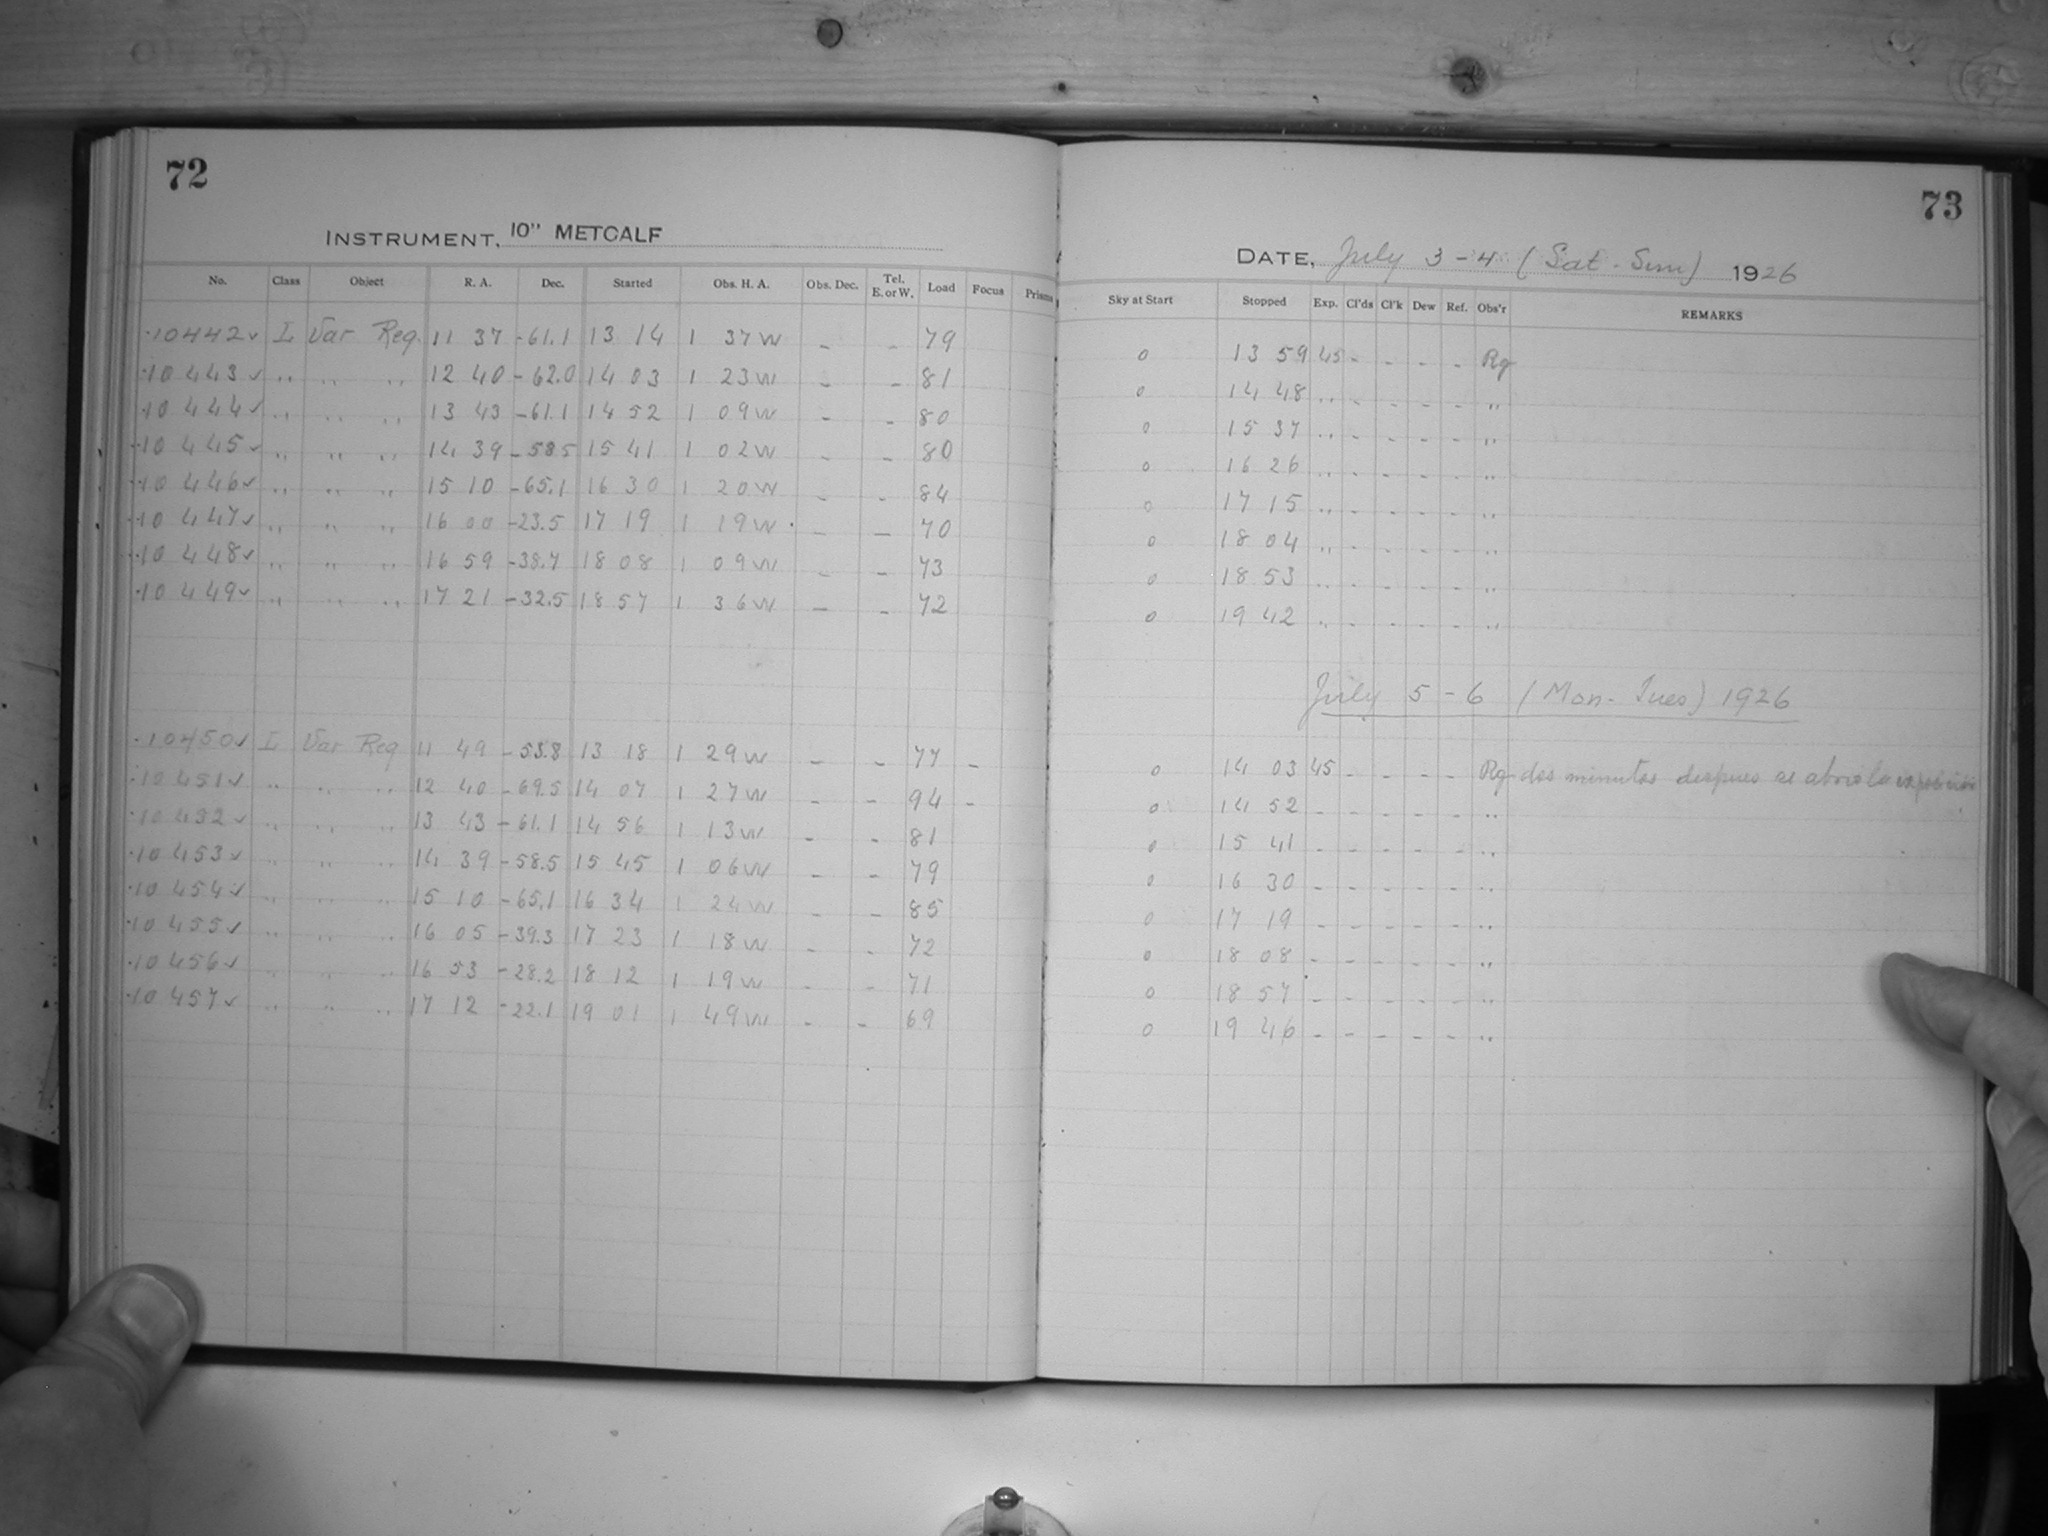 72
INSTRUMENT, 10" METCALF
No. Class Object R. A. Dec. Started Obs. H. A. Obs. Dec. Tel. E. or W. Load Focus Prisms
10442✓ L Var Reg. 11 37 -61.1 13 14 1 37W - - 79
10443✓ " " " 12 40 -62.0 14 03 1 23W - - 81
10444✓ " " " 13 43 -61.1 14 52 1 09W - - 80
10445✓ " " " 14 39 -58.5 15 41 1 02W - - 80
10446✓ " " " 15 10 -65.1 16 30 1 20W - - 84
10447✓ " " " 16 00 -23.5 17 19 1 19W - - 70
10448✓ " " " 16 59 -38.7 18 08 1 09W - - 73
10449✓ " " " 17 21 -32.5 18 57 1 36W - - 72
10450✓ L Var Reg 11 49 -53.8 13 18 1 29W - - 77 -
10451✓ " " " 12 40 -69.5 14 07 1 27W - - 94 -
10452✓ " " " 13 43 -61.1 14 56 1 13W - - 81
10453✓ " " " 14 39 -58.5 15 45 1 06W - - 79
10454✓ " " " 15 10 -65.1 16 34 1 24W - - 85
10455✓ " " " 16 05 -39.3 17 23 1 18W - - 72
10456✓ " " " 16 53 -28.2 18 12 1 19W - - 71
10457✓ " " " 17 12 -22.1 19 01 1 49W - - 69
73
DATE, July 3-4 (Sat-Sun) 1926
Sky at Start Stopped Exp. Cl'ds Cl'k Dew Ref. Obs'r REMARKS
0 13 59 45 - - - - Rg
0 14 48 " - - - - "
0 15 37 " - - - - "
0 16 26 " - - - - "
0 17 15 " - - - - "
0 18 04 " - - - - "
0 18 53 " - - - - "
0 19 42 " - - - - "
July 5-6 (Mon-Tues) 1926
0 14 03 45 - - - - Rg dos minutos despues se abrio la exposicion
0 14 52 - - - - - "
0 15 41 - - - - - "
0 16 30 - - - - - "
0 17 19 - - - - - "
0 18 08 - - - - - "
0 18 57 - - - - - "
0 19 46 - - - - - "